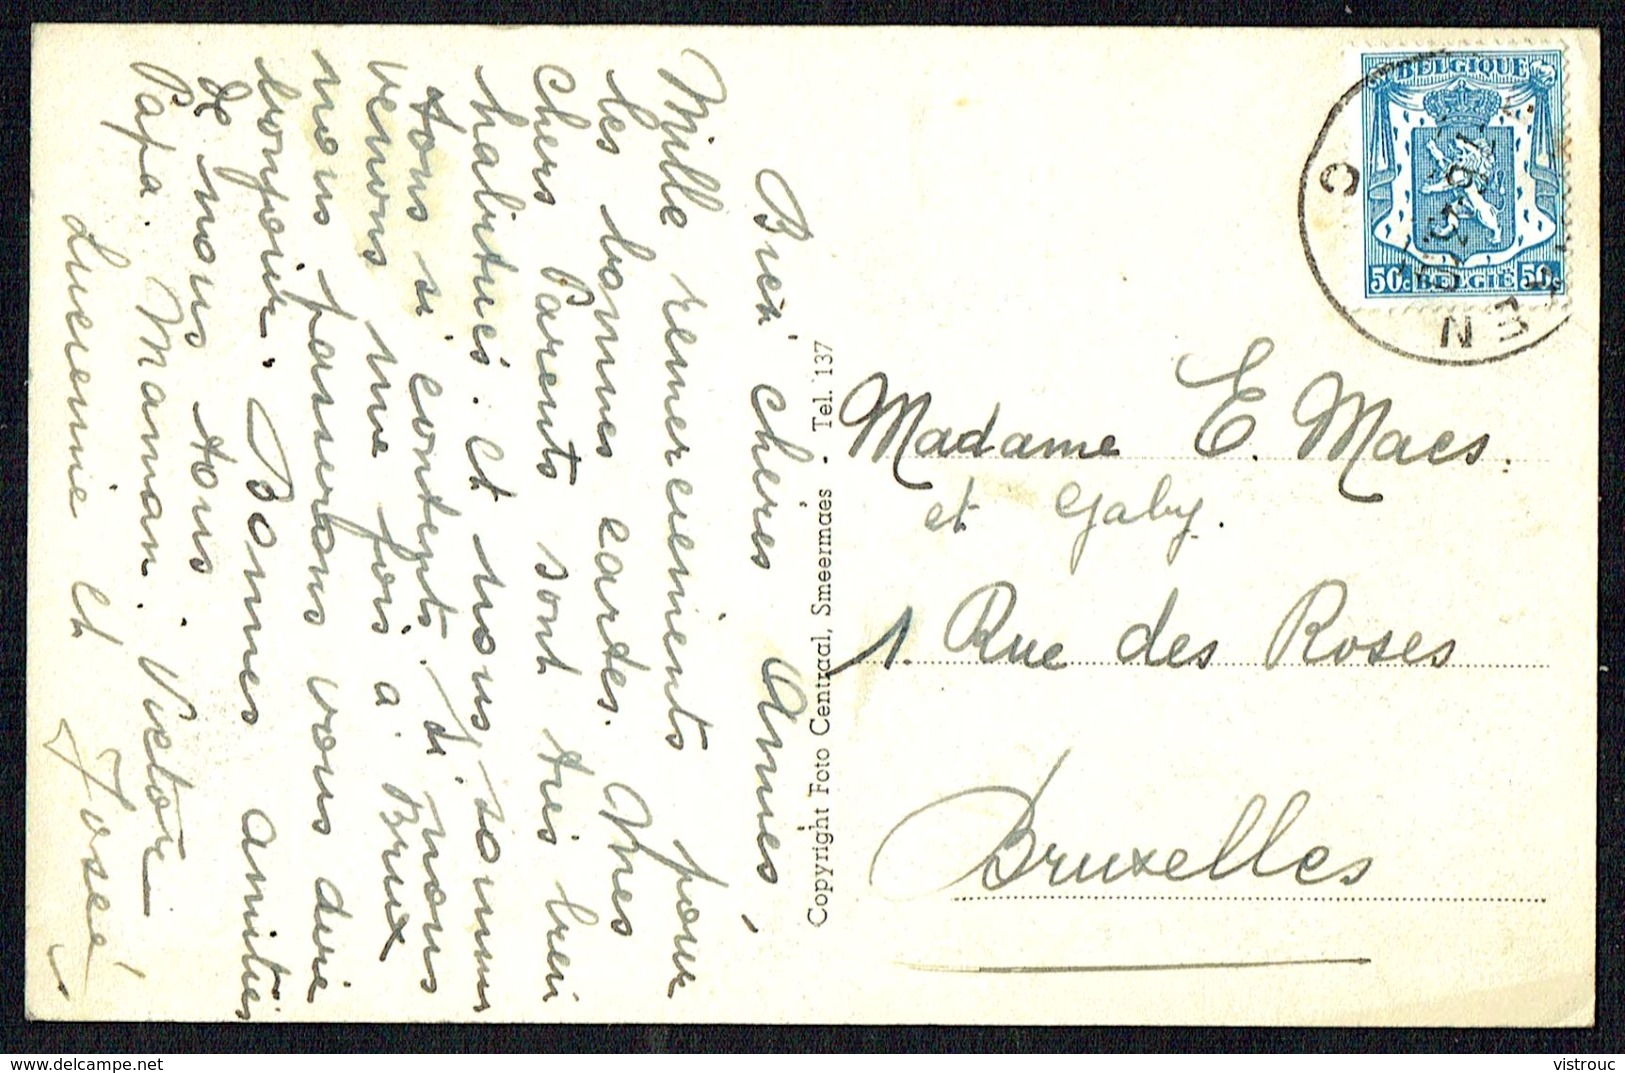 Bien chères Amies,
Mille remerciements pour
les bonnes cartes. Mes
chers Parents sont très bien
habitués. et nous sommes
tous si contents. Si nous
venons une fois à Brux
nous passerons vous dire
bonjour. Bonnes amitiés
de nous tous
Papa. Maman. Victor
Lucienne et José
Copyright Foto Centraal, Smeermaes - Tel. 137
BELGIQUE
50c BELGIË 50c
Madame E. Maes.
et Gaby.
1. Rue des Roses
Bruxelles
vistrouc